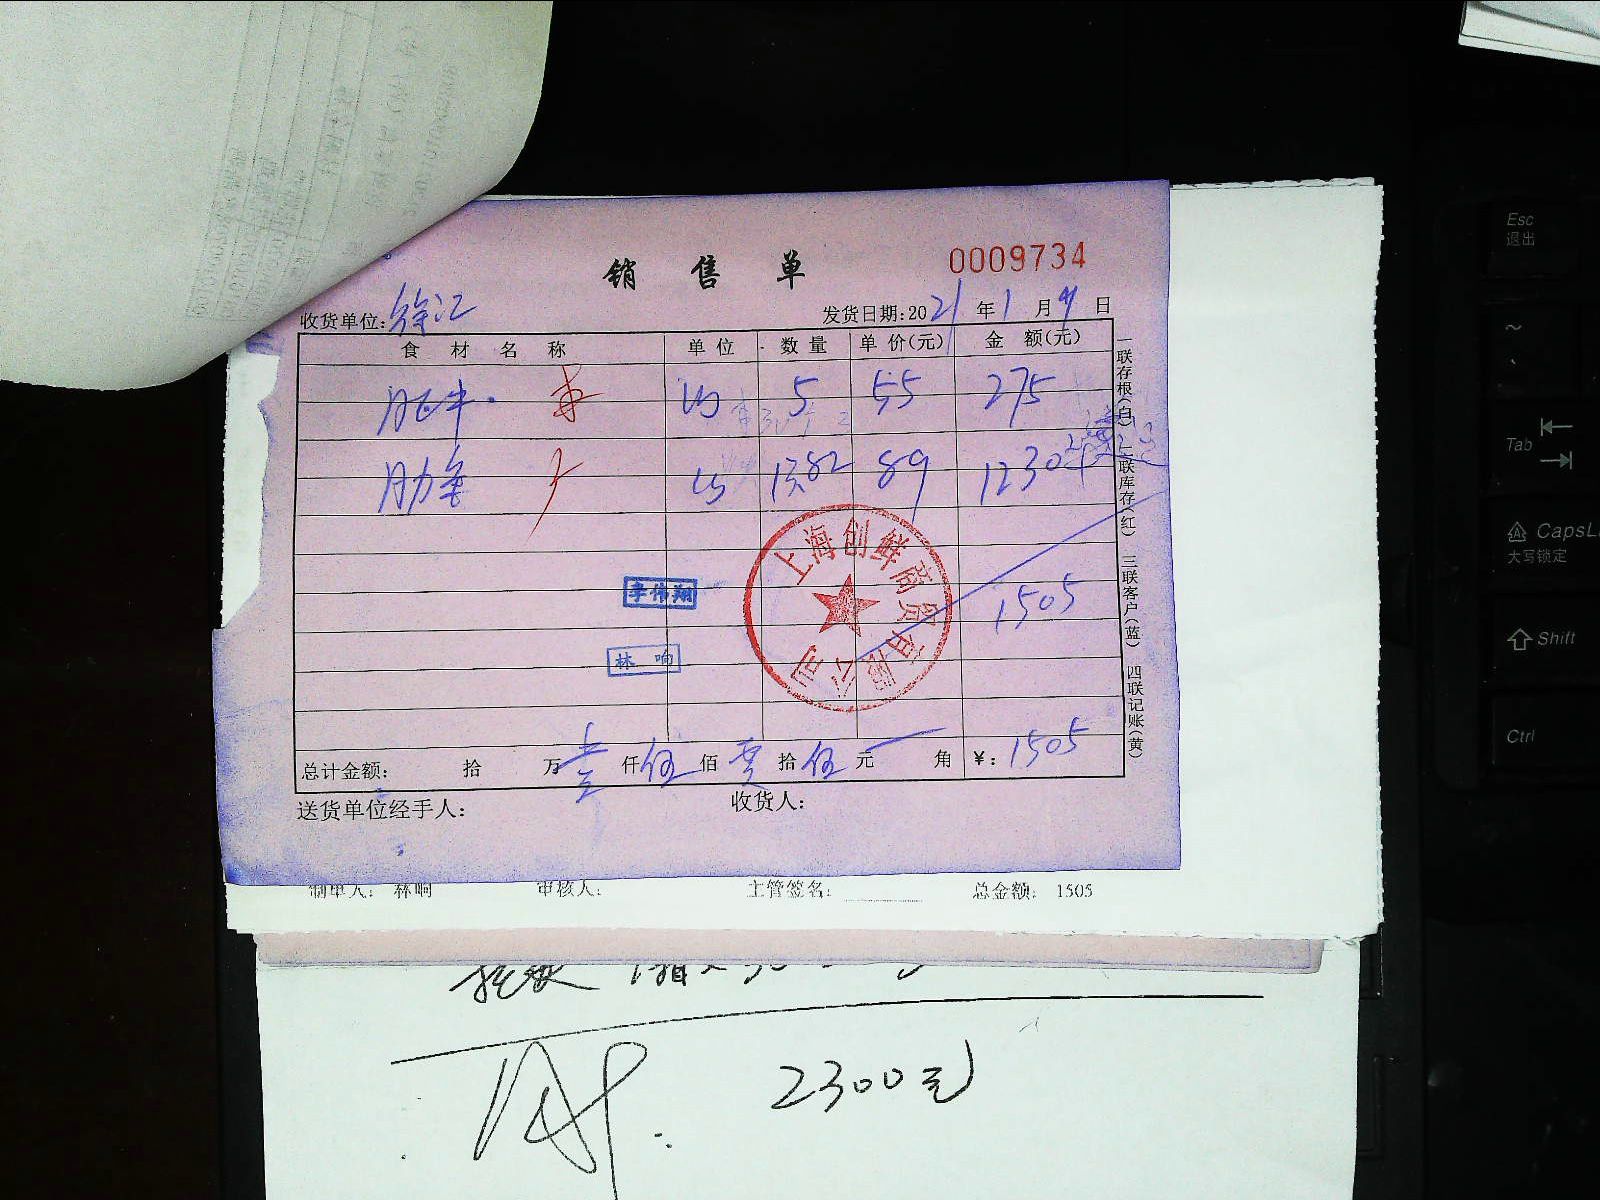 销售单
0009734
收货单位:徐汇
发货日期:2021年1月9日
食材名称 单位 数量 单价(元) 金额(元)
肥牛 5 55 275
肋条 13.82 89 1230
上海创鲜商贸有限公司
李伟翔
1505
林响
总计金额: 拾 万 壹仟伍佰零拾伍元 角 ¥:1505
送货单位经手人: 收货人:
一联存根(白) 二联库存(红) 三联客户(蓝) 四联记账(黄)
制单人: 林响 审核人: 主管签名: 总金额: 1505
2300元
Esc
退出
Tab
CapsL
大写锁定
Shift
Ctrl